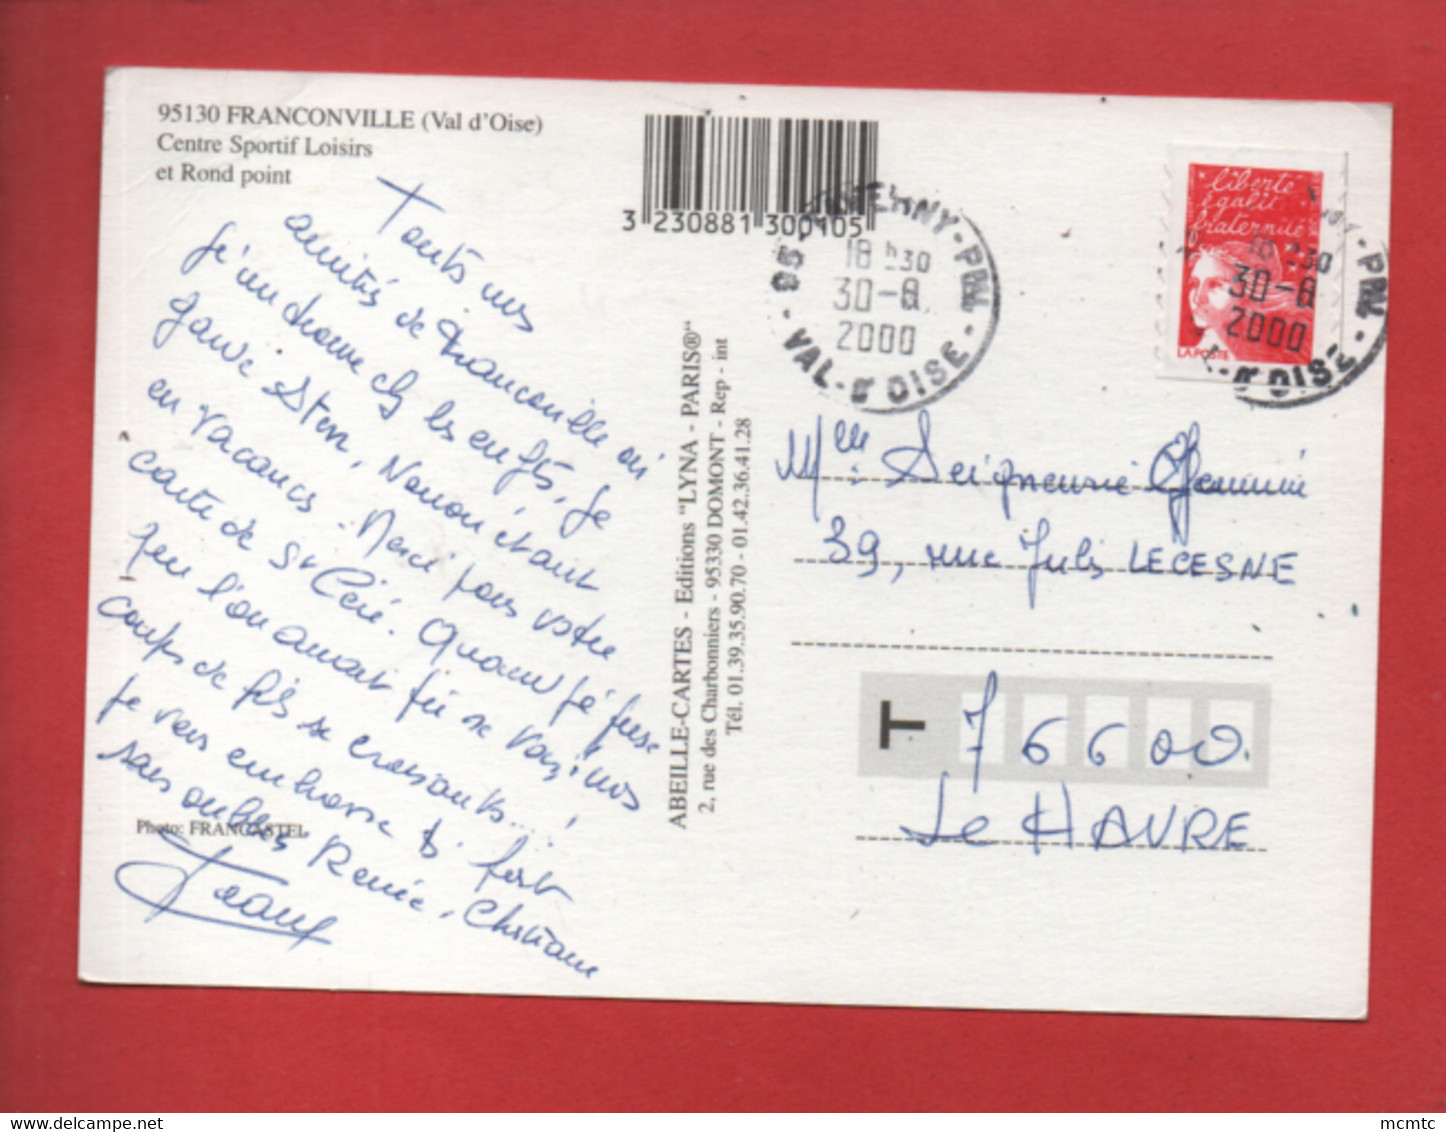 95130 FRANCONVILLE (Val d'Oise)
Centre Sportif Loisirs
et Rond point
Toutes nos
amitiés de Franconville où
je me trouve chez les enfts, je
garde Ston, Nonon étant
en vacances. Merci pour votre
carte de St Céré. Quand je pense
que l'on aurait pu se voir, nos
coups de fils se croisants...!
Je vous embrasse b. fort
sans oublier Renée, Christiane
Jeanne
Photo: FRANCASTEL
3 230881 300105
ABEILLE-CARTES - Editions "LYNA - PARIS®"
2, rue des Charbonniers - 95330 DOMONT - Rep - int
Tél. 01.39.35.90.70 - 01.42.36.41.28
18 h 30
30-8
2000
VAL-D'OISE
liberté
égalité
fraternité
LA POSTE
30-8
2000
Mlle Seigneurie
39, rue Jules LECESNE
T 76600
Le HAVRE
mcmtc